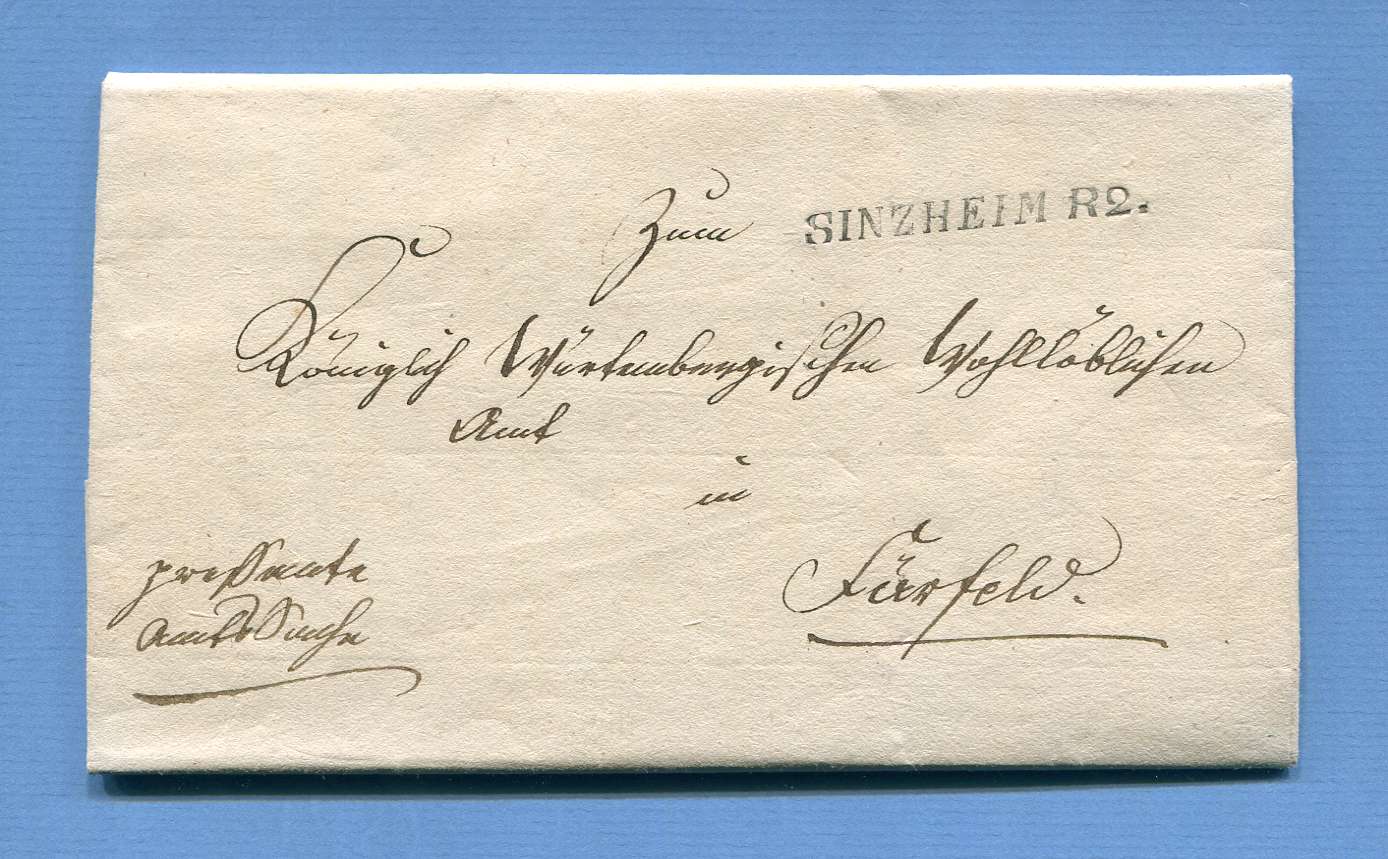 Zum SINZHEIM R2.
Königlich Würtembergischen Wohllöblichen
Amt
in
Fürfeld.
pressante
Amts Sache